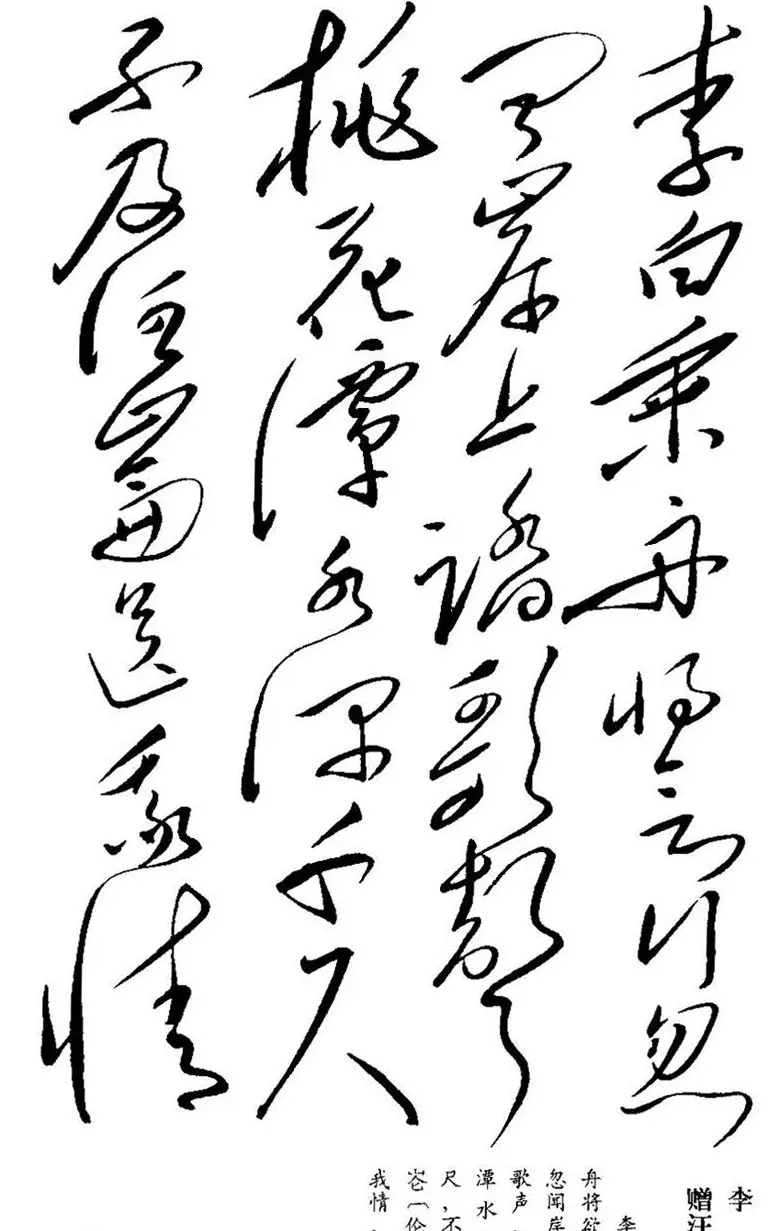 李白乘舟将欲行忽
闻岸上踏歌声
桃花潭水深千尺
不及汪崙送我情
李
赠汪
李
舟将欲
忽闻岸
歌声
潭水
尺，不
崙（伦
我情